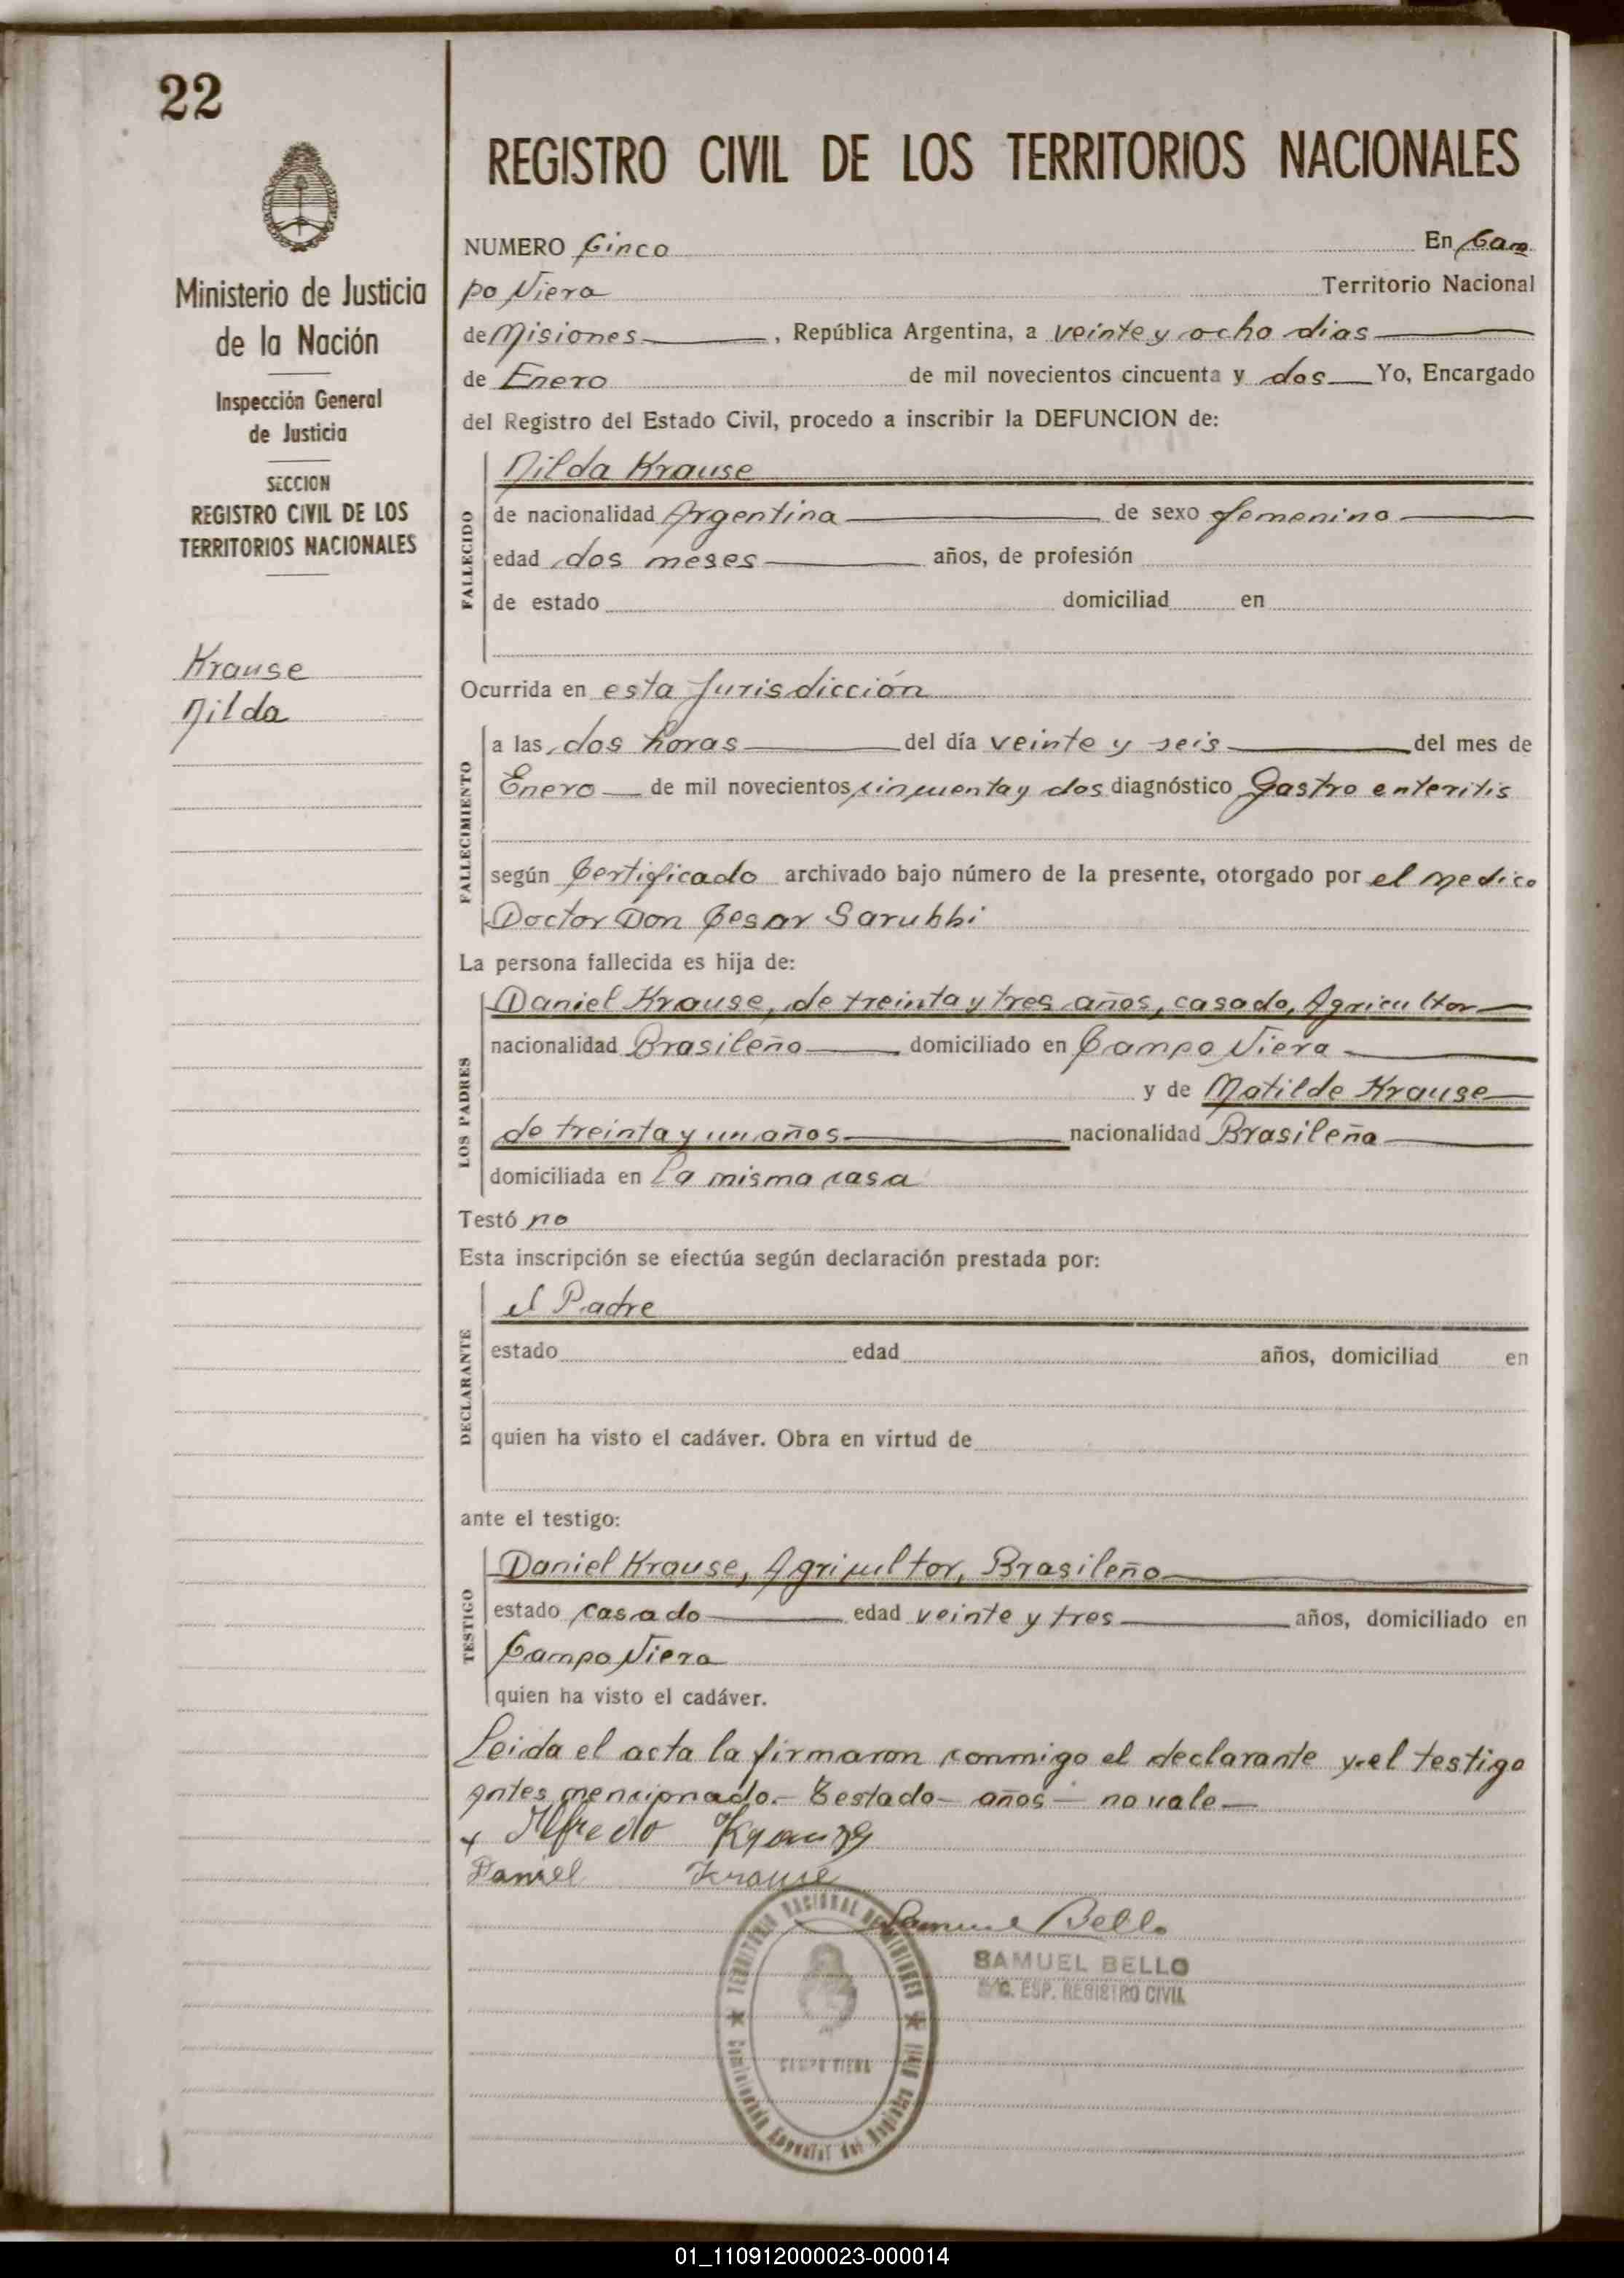 22
Ministerio de Justicia
de la Nación
Inspección General
de Justicia
SECCION
REGISTRO CIVIL DE LOS
TERRITORIOS NACIONALES
Krause
Nilda
REGISTRO CIVIL DE LOS TERRITORIOS NACIONALES
NUMERO Cinco En Cam
po Viera Territorio Nacional
de Misiones, República Argentina, a veinte y ocho dias
de Enero de mil novecientos cincuenta y dos Yo, Encargado
del Registro del Estado Civil, procedo a inscribir la DEFUNCION de:
FALLECIDO
Nilda Krause
de nacionalidad Argentina de sexo femenino
edad dos meses años, de profesión
de estado domiciliad en
Ocurrida en esta Jurisdicción
FALLECIMIENTO
a las dos horas del día veinte y seis del mes de
Enero de mil novecientos cincuenta y dos diagnóstico Gastro enteritis
según Certificado archivado bajo número de la presente, otorgado por el medico
Doctor Don Cesar Sarubbi
La persona fallecida es hija de:
LOS PADRES
Daniel Krause, de treinta y tres años, casado, Agricultor
nacionalidad Brasileño domiciliado en Campo Viera
y de Matilde Krause
de treinta y un años nacionalidad Brasileña
domiciliada en La misma casa
Testó no
Esta inscripción se efectúa según declaración prestada por:
DECLARANTE
el Padre
estado edad años, domiciliad en
quien ha visto el cadáver. Obra en virtud de
ante el testigo:
TESTIGO
Daniel Krause, Agricultor, Brasileño
estado casado edad veinte y tres años, domiciliado en
Campo Viera
quien ha visto el cadáver.
Leida el acta la firmaron conmigo el declarante y el testigo
antes mencionado.- Testado- años - no vale
Alfredo
Daniel Krause
Samuel Bello
SAMUEL BELLO
ESP. REGISTRO CIVIL
TERRITORIO NACIONAL DE MISIONES
CAMPO VIERA
Especial del Registro Civil
01_110912000023-000014